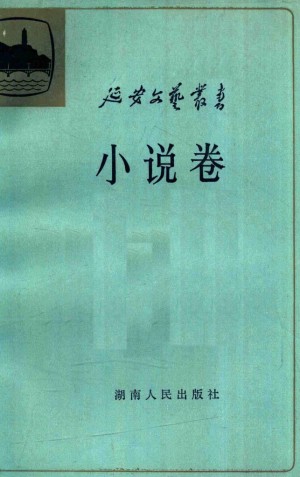 延安文艺叢书
小说卷
湖南人民出版社